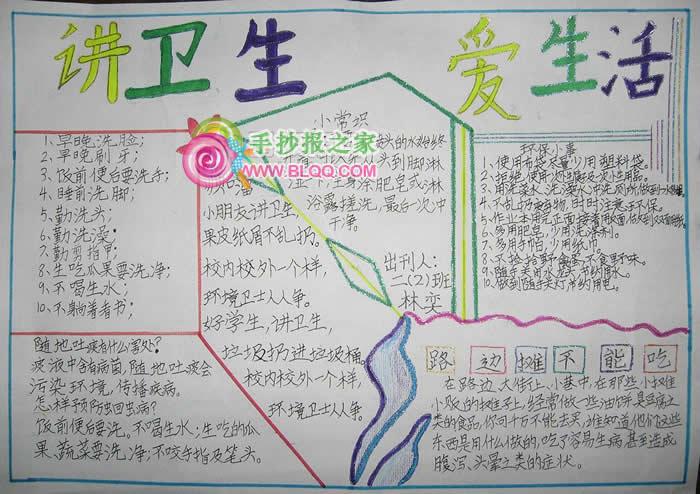 讲卫生 爱生活
1、早晚洗脸；
2、早晚刷牙；
3、饭前便后要洗手；
4、睡前洗脚；
5、勤洗头；
6、勤洗澡；
7、勤剪指甲；
8、生吃瓜果要洗净；
9、不喝生水；
10、不躺着看书；
随地吐痰有什么害处？
痰液中含有病菌，随地吐痰会
污染环境，传播疾病。
怎样预防蛔虫病？
饭前便后要洗。不喝生水；生吃的瓜
果、蔬菜要洗净；不咬手指及笔头。
小常识
头的水始终
从头到脚淋
涂肥皂或淋
浴露搓洗，最后一次冲
干净。
手抄报之家
WWW.BLQQ.COM
小朋友讲卫生，
果皮纸屑不乱扔。
校内校外一个样，
环境卫士人人争。
好学生，讲卫生，
垃圾扔进垃圾桶。
校内校外一个样，
环境卫士人人争。
出刊人：
二（2）班
林奕
环保小事
1、使用布袋，尽量少用塑料袋。
4、不乱扔废弃物，时时注意环保。
6、多用肥皂，少用洗涤剂。
7、多用手帕，少用纸巾。
10、做到随手关灯，节约用电。
路边摊不能吃
在路边、大街上、小巷中，在那些小摊
小贩的摊子上，经常做一些油饼、臭豆腐之
类的食品，你可千万不能去买，谁知道他们这些
东西是用什么做的，吃了容易生病，甚至造成
腹泻、头晕之类的症状。